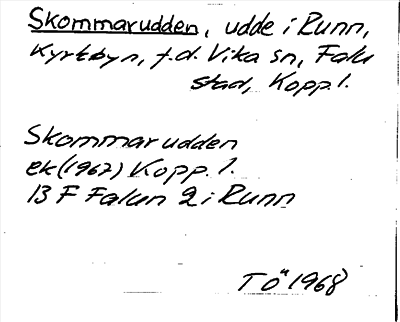 Skommarudden, udde i Runn,
Kyrkbyn, f.d. Vika sn, Falu
stad, Kopp.l.
Skommarudden
ek(1967) Kopp.l.
13 F Falun 2 i Runn
TÖ 1968